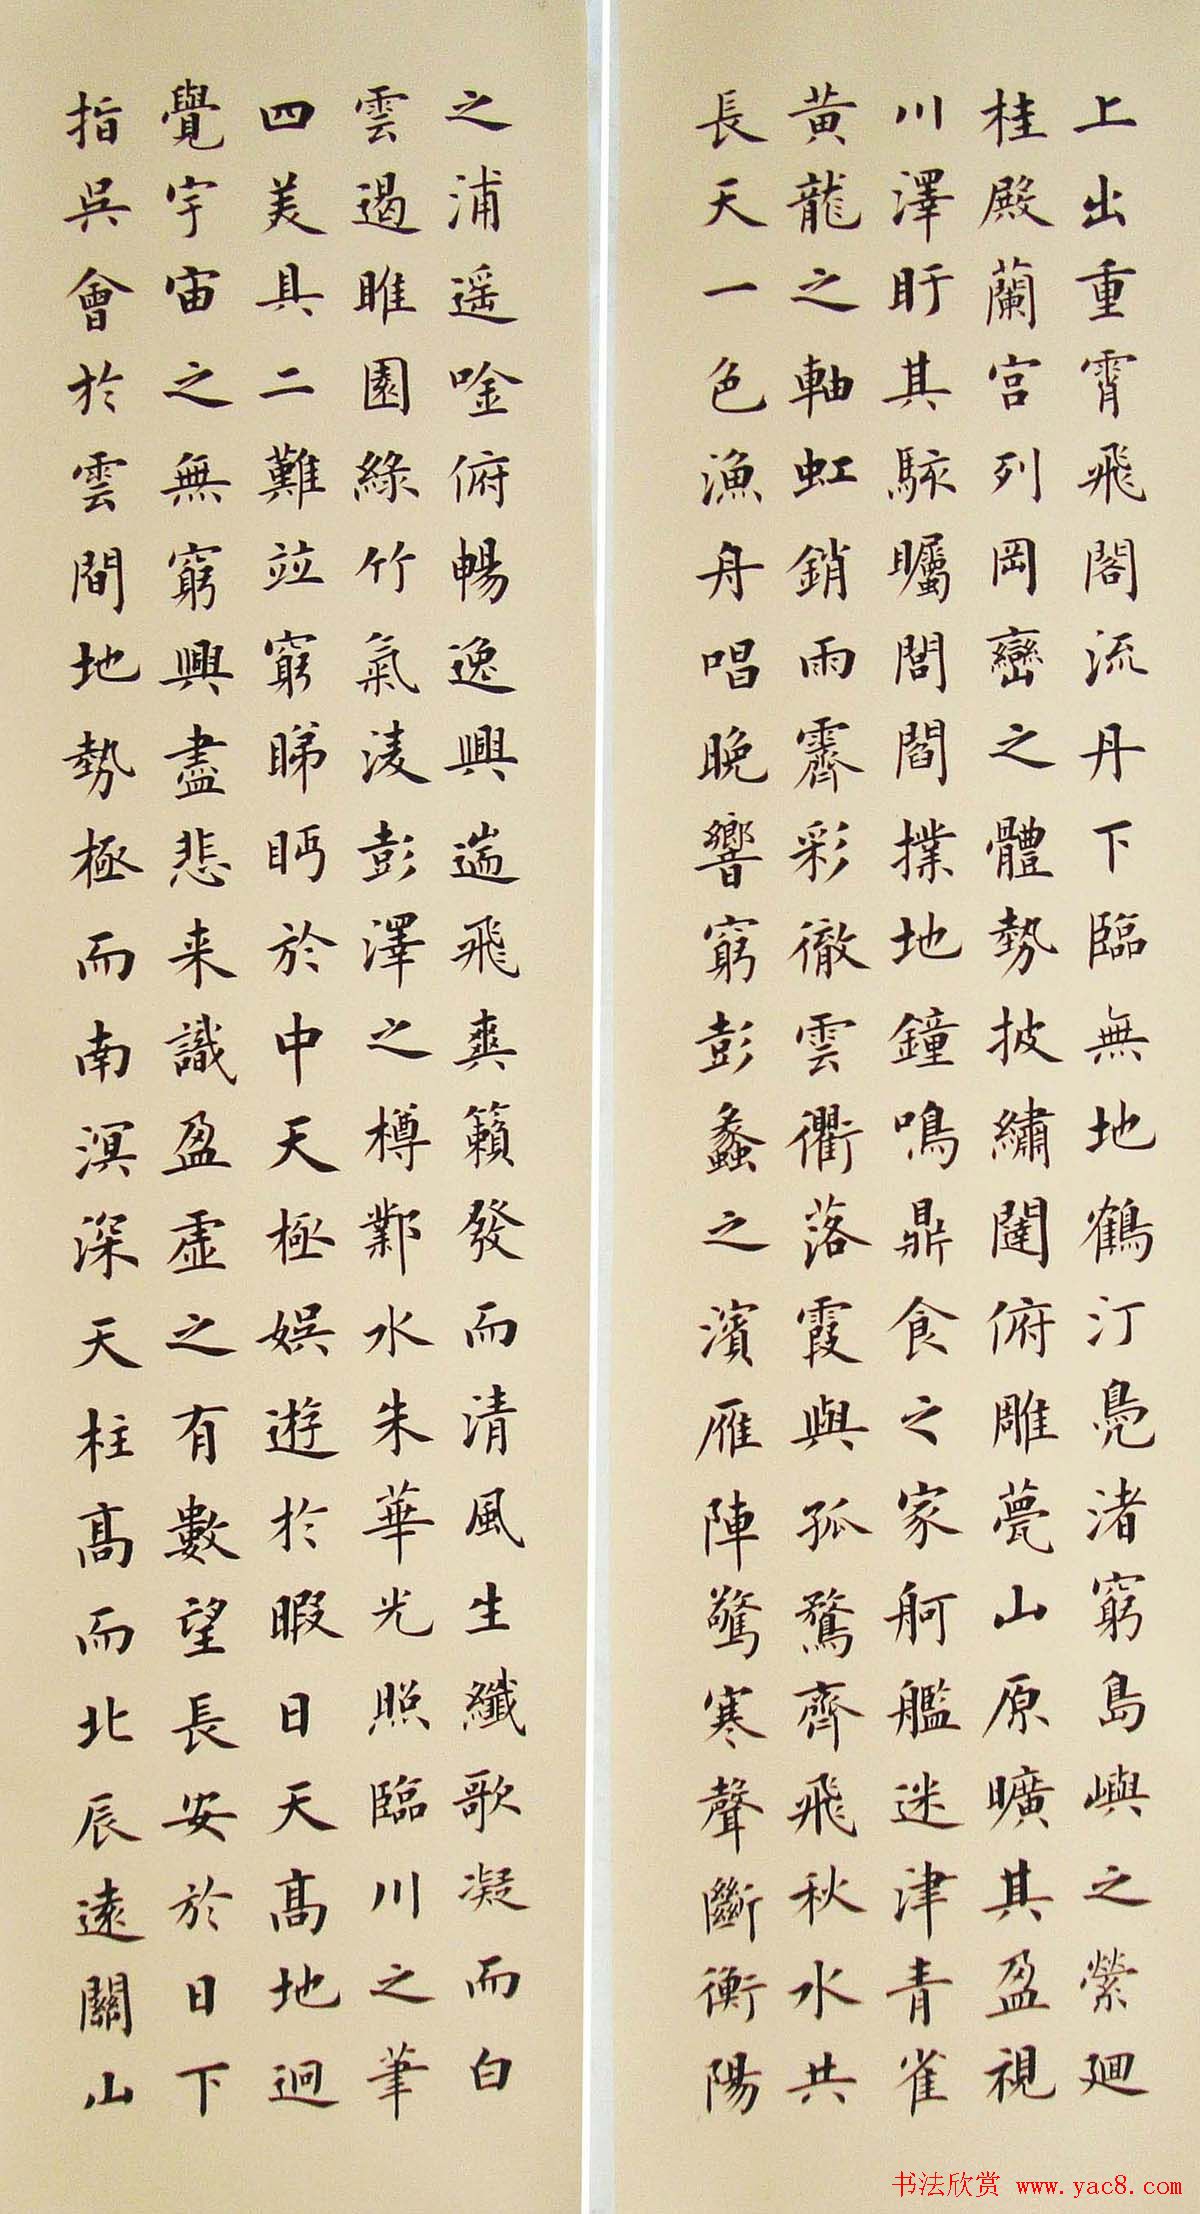 上出重霄飛閣流丹下臨無地鶴汀鳧渚窮島嶼之縈廻
桂殿蘭宮列岡巒之體勢披繡闥俯雕甍山原曠其盈視
川澤盱其駭矚閭閻撲地鐘鳴鼎食之家舸艦迷津青雀
黃龍之軸虹銷雨霽彩徹雲衢落霞與孤鶩齊飛秋水共
長天一色漁舟唱晚響窮彭蠡之濱雁陣驚寒聲斷衡陽
之浦遥唫俯暢逸興遄飛爽籟發而清風生纖歌凝而白
雲遏睢園綠竹氣淩彭澤之樽鄴水朱華光照臨川之筆
四美具二難竝窮睇眄於中天極娛遊於暇日天高地迥
覺宇宙之無窮興盡悲来識盈虛之有數望長安於日下
指吳會於雲間地勢極而南溟深天柱高而北辰遠關山
书法欣赏 www.yac8.com